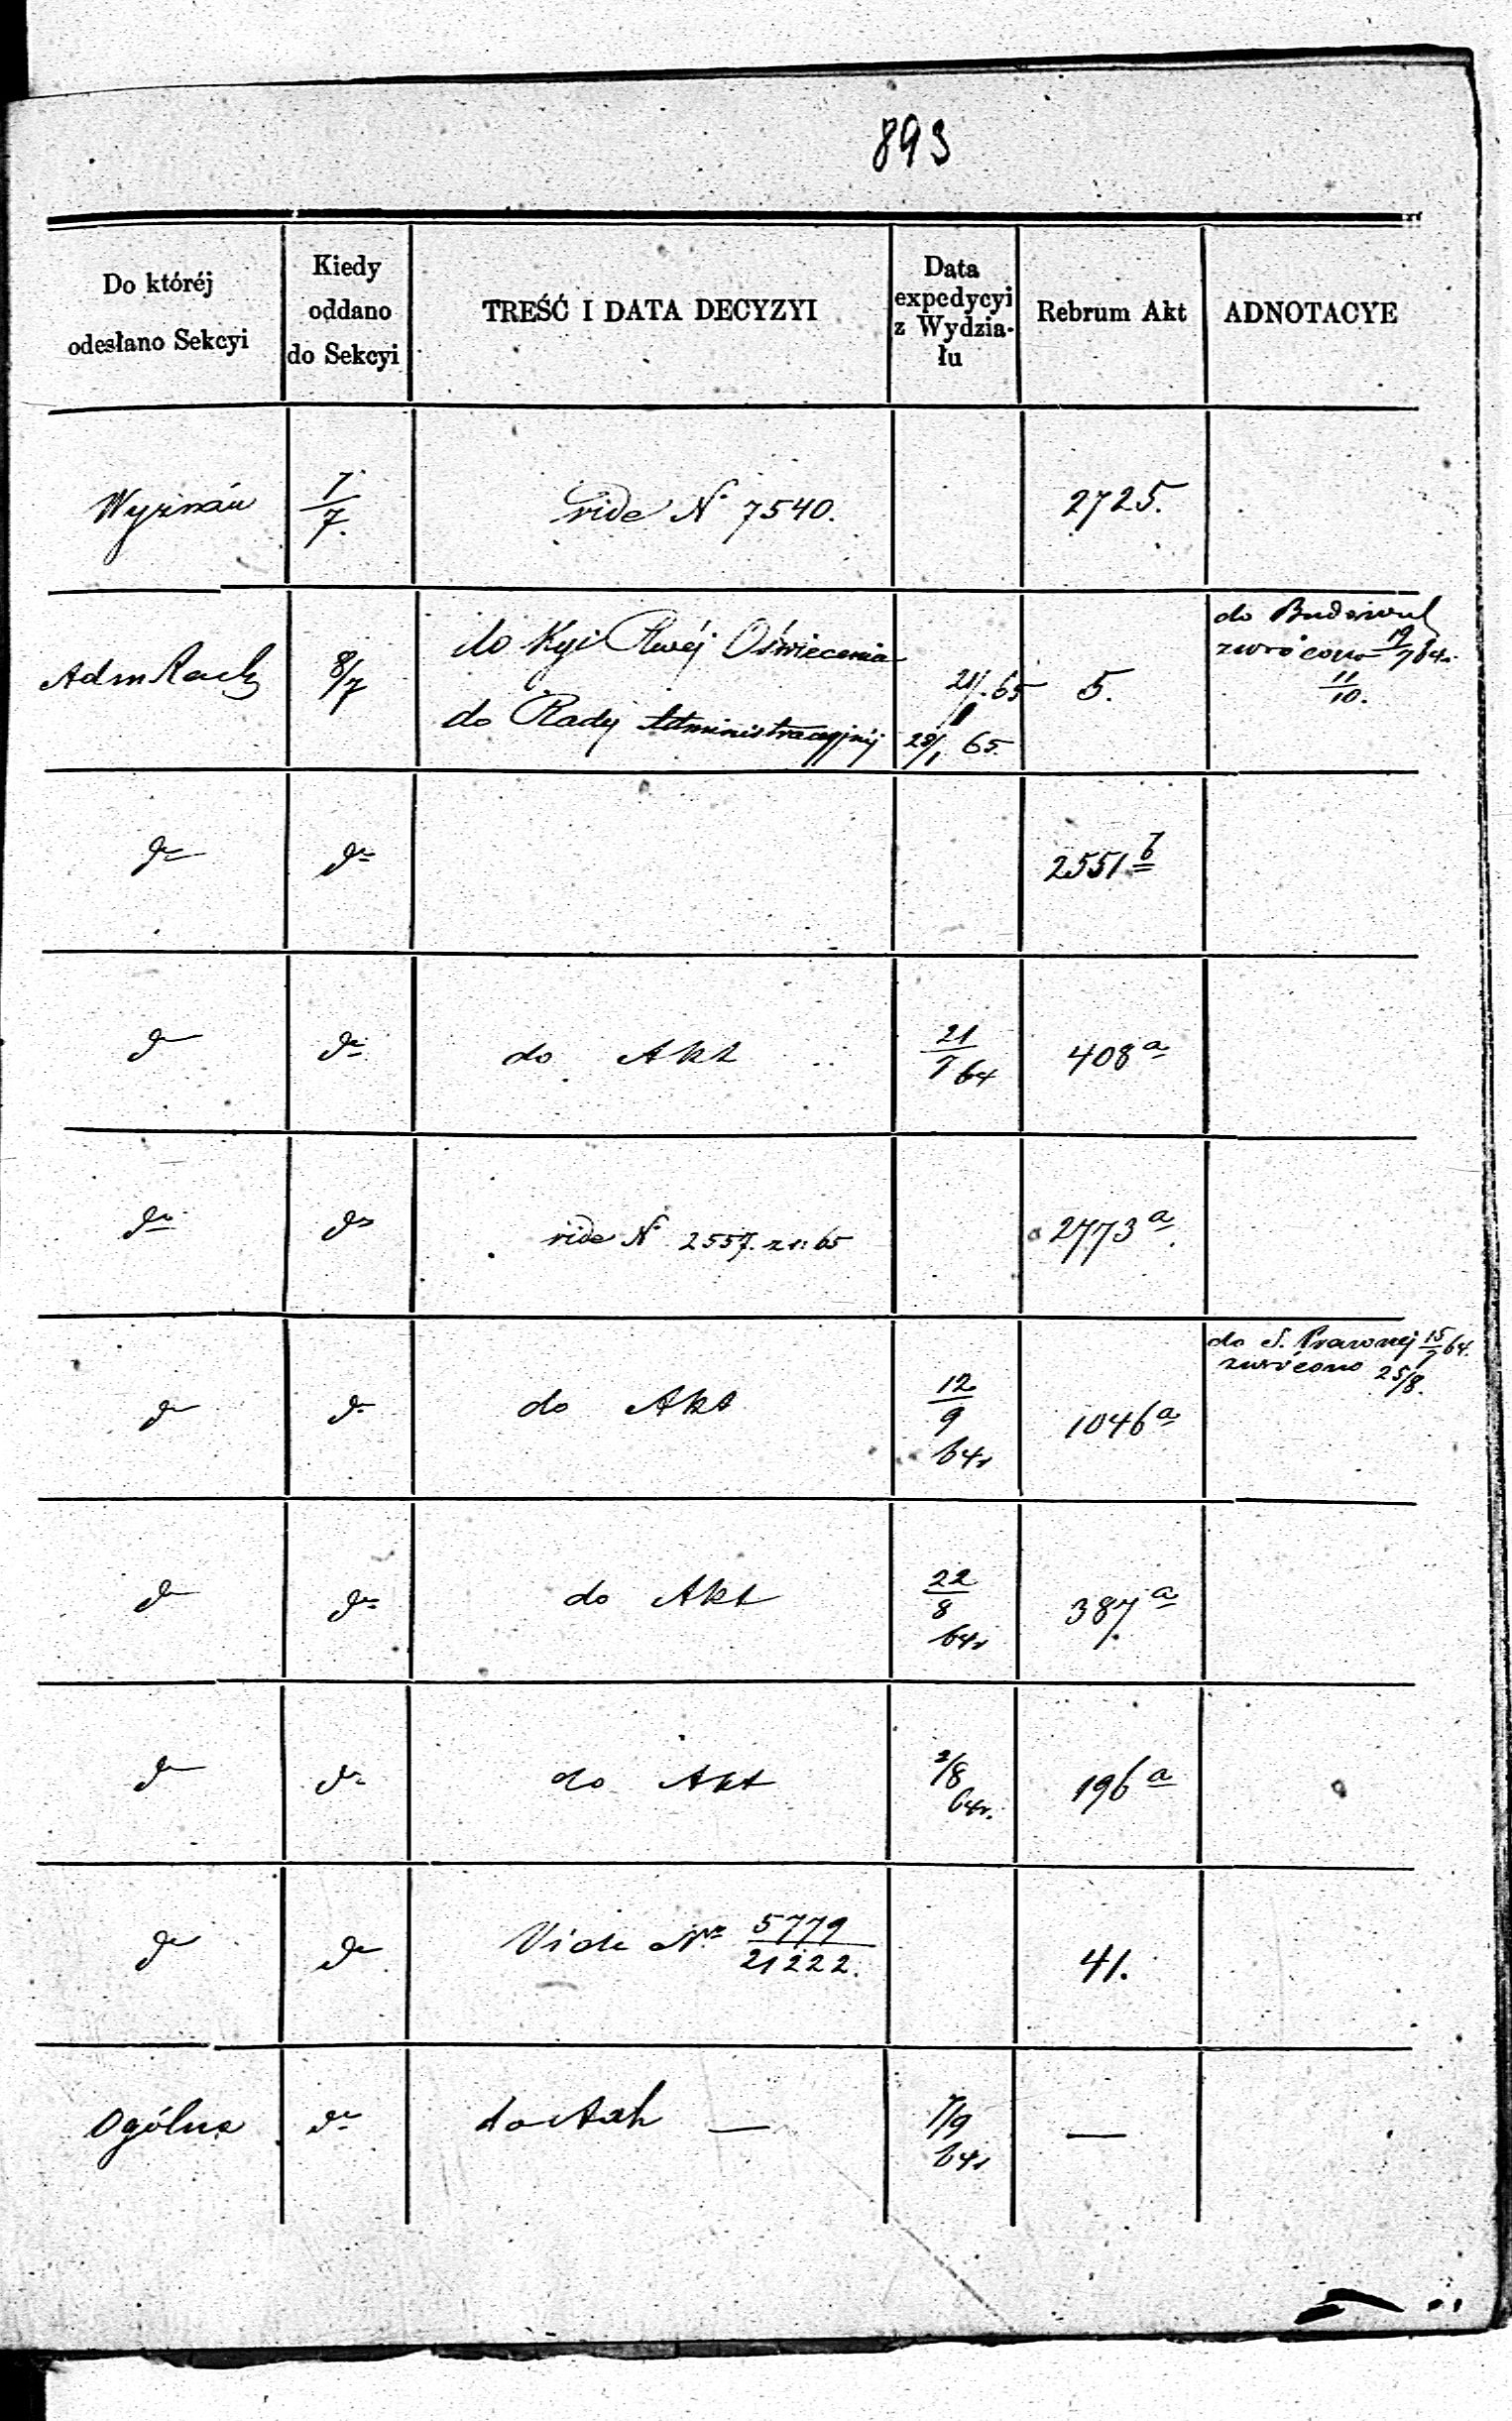 893
Do któréj odesłano Sekcyi | Kiedy oddano do Sekcyi | TREŚĆ I DATA DECYZYI | Data expedycyi z Wydzia-łu | Rebrum Akt | ADNOTACYE
Wyznań | 7/7. | vide N 7540. | | 2725. |
Adm Rach | 8/7 | do Kyi Rwéj Oświecenia | 21/1.65 | 5. | do Budowni zwrócono 19/7 64. 11/10.
do Rady Administracyjnéj | 28/1 65.
do | do | | | 2551 b |
do | do | do Akt | 21/7 64 | 408 a |
do | do | vide N 2557. z r: 65 | | 2773 a. |
do | do | do Akt | 12/9 64r | 1046 a | do S. Prawnej 15/7 64. zwrócono 25/8.
do | do | do Akt | 22/8 64r | 387 a |
do | do | do Akt | 2/8 64r. | 196 a |
do | do | Vide Nr 5779/21222. | | 41. |
Ogólna | do | do Akt — | 7/9 64r | — |